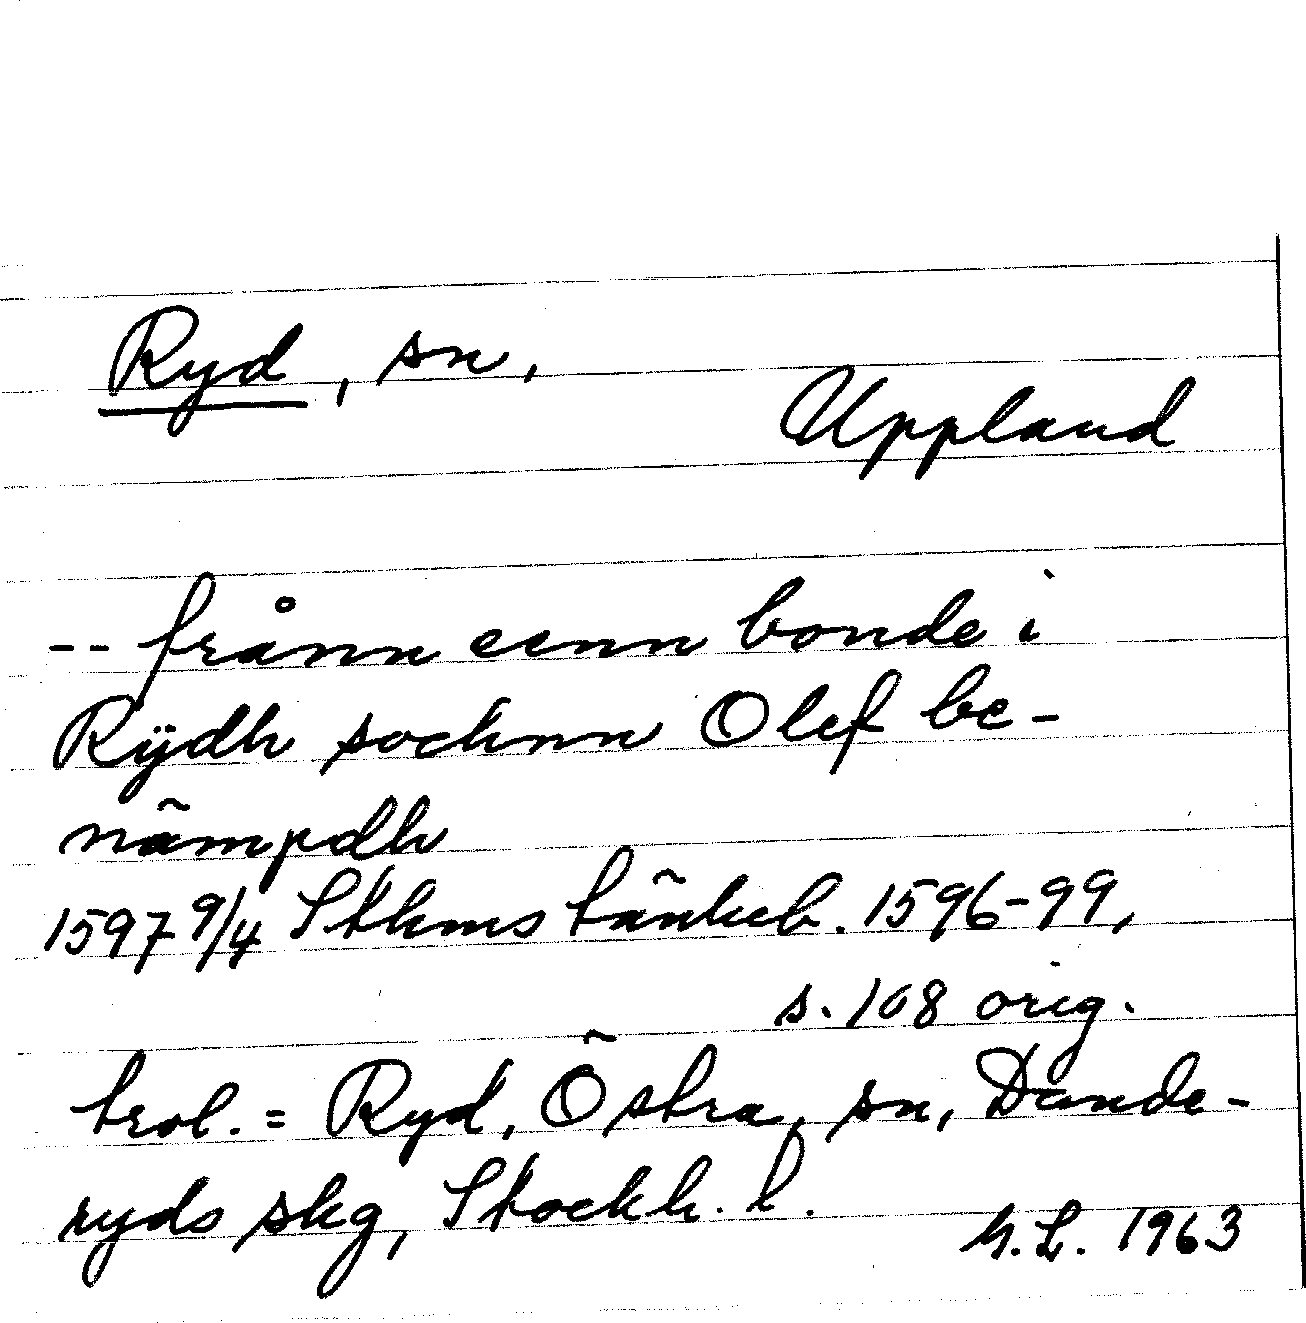 Ryd, sn,
Uppland
-- frånn eenn bonde i
Rÿdh sochnn Olef be-
nämpdh
1597 9/4 Sthms tänkeb. 1596-99,
s. 108 orig.
trol. = Ryd, Östra, sn, Dande-
ryds skg, Stockh. l.
G.L. 1963